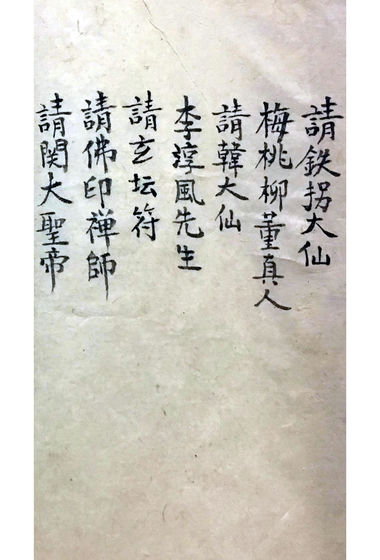 請鉄拐大仙
梅桃柳董真人
請韓大仙
李淳風先生
請玄坛符
請佛印禅師
請関大聖帝